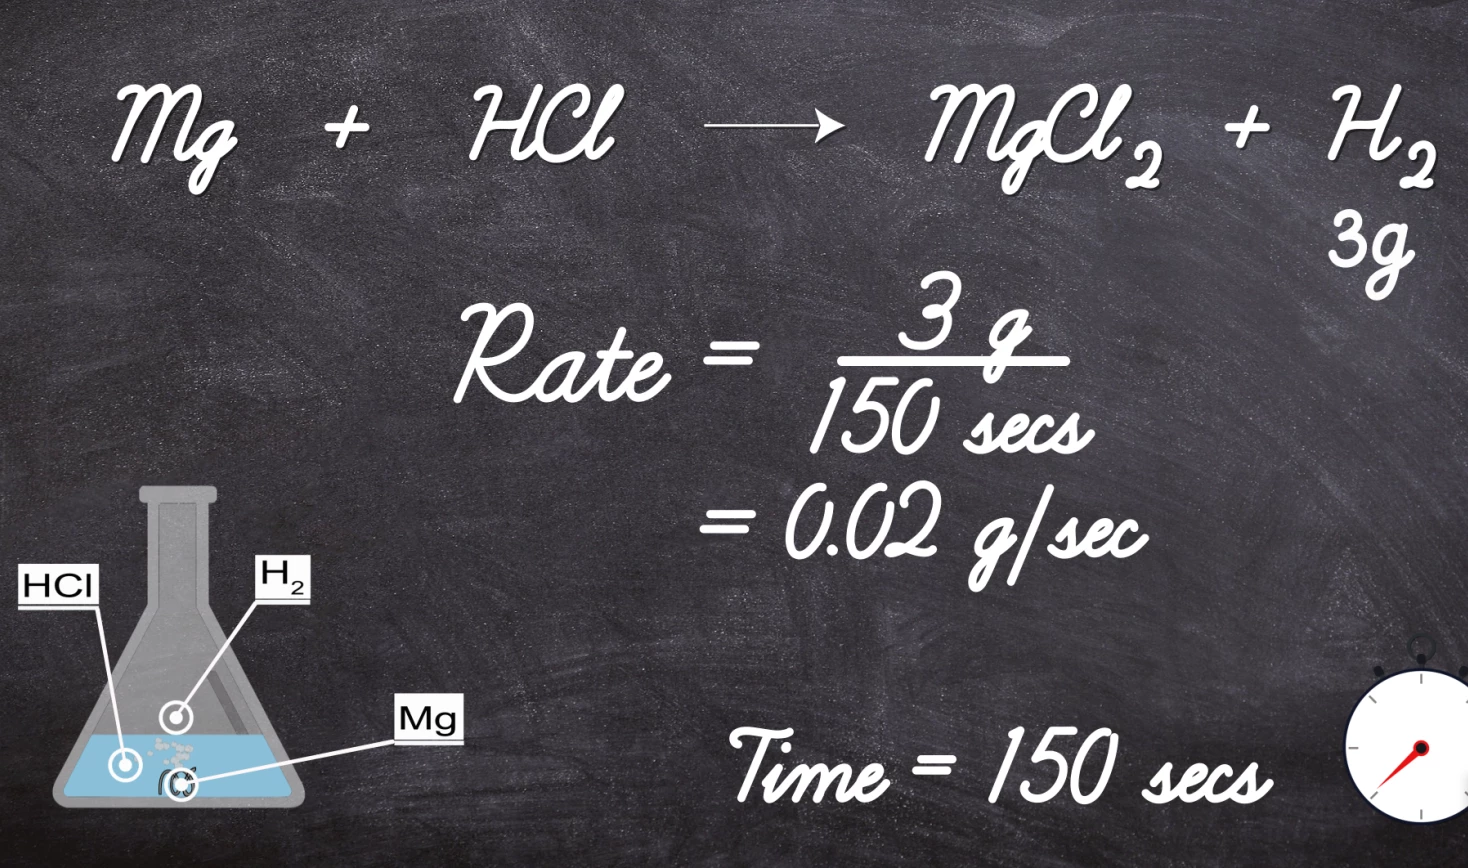 Mg + HCl → MgCl₂ + H₂
3g
Rate = 3 g / 150 secs
= 0.02 g/sec
HCl
H₂
Mg
Time = 150 secs